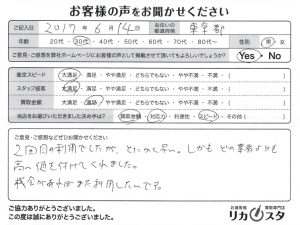 お客様の声をお聞かせください
ご記入日 2017年 6月14日 お住いの都道府県 東京都
年齢 20代・30代・40代・50代・60代・70代・80代〜 性別 男・女
ご意見・ご感想を弊社ホームページにお客様の声として掲載させて頂いてもよろしいでしょうか? Yes・No
査定スピード 大満足・満足・やや満足・どちらでもない・やや不満・不満・( )
スタッフ接客 大満足・満足・やや満足・どちらでもない・やや不満・不満・( )
買取金額 大満足・満足・やや満足・どちらでもない・やや不満・不満・( )
当店をお選びいただきました決め手は? 買取金額・対応力・利便性・スピード・その他( )
ご意見・ご感想などぜひお聞かせください
2回目の利用でしたが、とにかく早い。しかもどの業者よりも
高い値を付けてくれました。
機会があればまた利用したいです。
ご協力ありがとうございました。
この度は誠にありがとうございました。
お酒高価 買取専門店
リカスタ